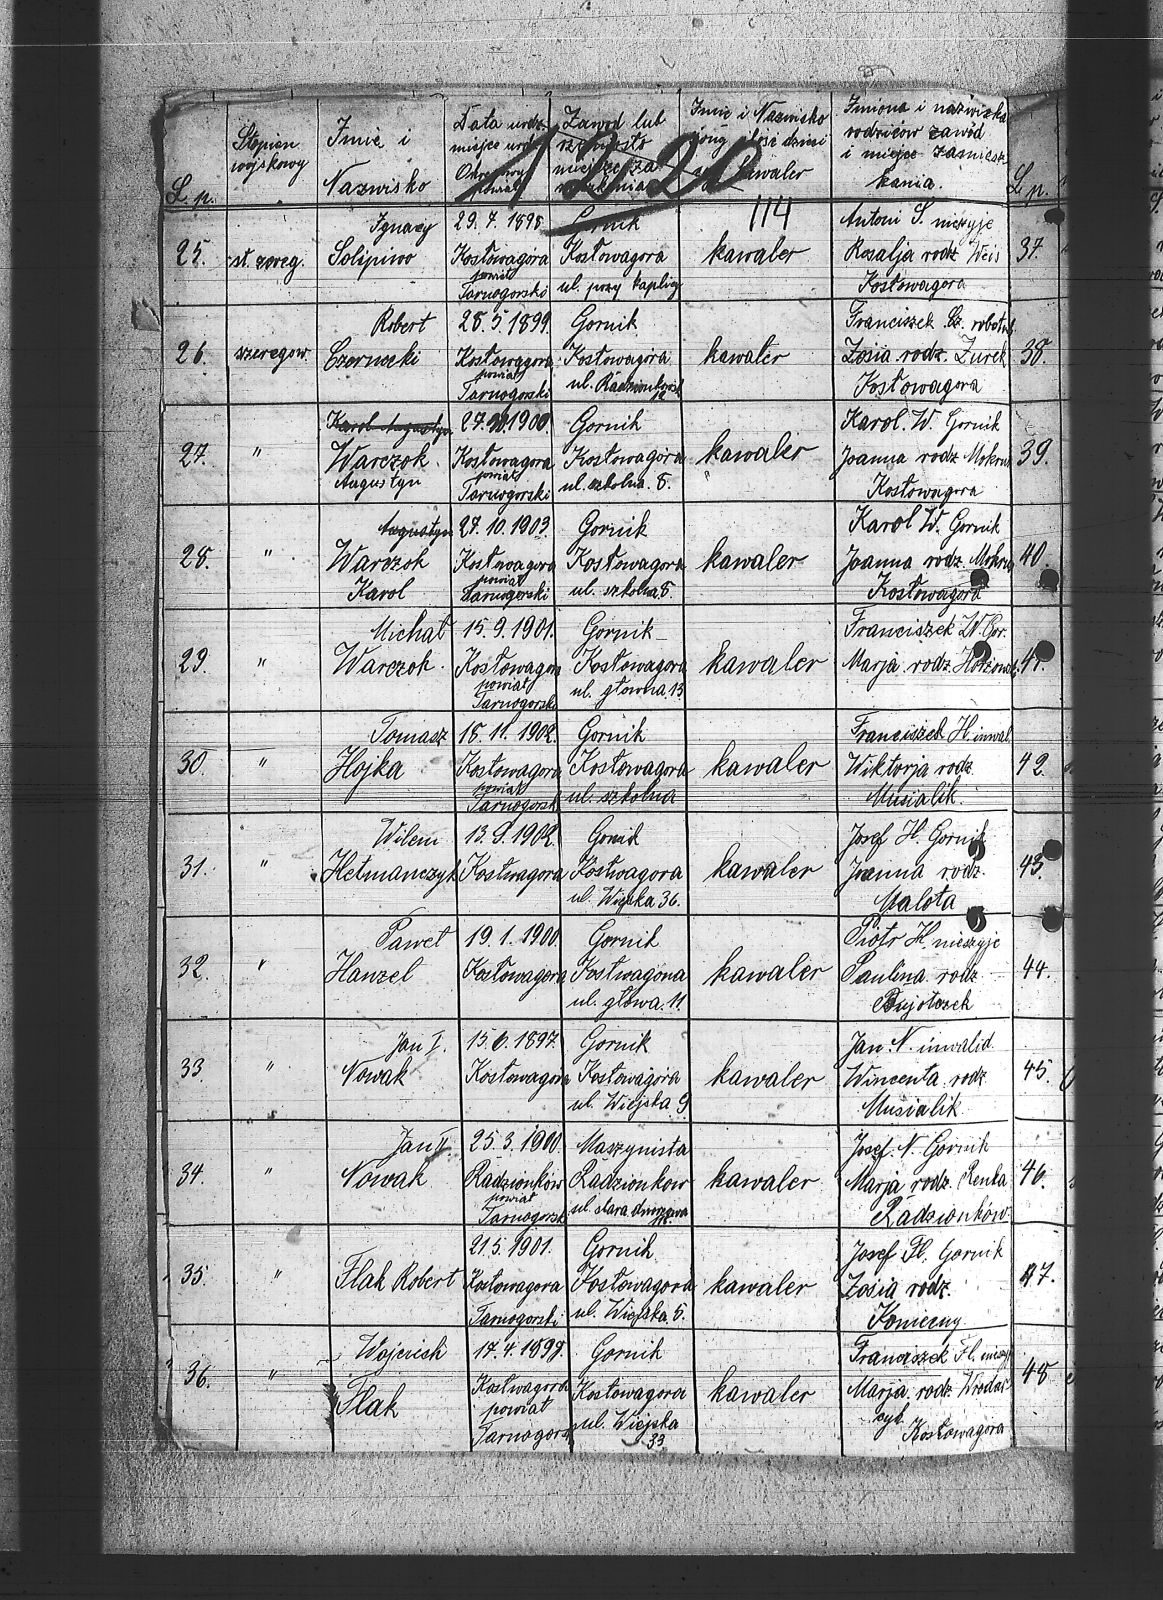 L. p.
Stopien
wojskowy
Imie i
Nazwisko
Data urdz.
miejsce urdz.
powiat
Zawod lub
Imie i Nazwisko
kawaler
Imiona i nazwiska
rodziców zawód
i miejsce zamiesz
kania.
L. p.
1220
114
25.
st. szereg.
Ignacy
Solipiwo
29. 7. 1898
Kosłowagóra
powiat
Tarnogorski
Grnik
Kosłowagora
ul. przy kaplicy
kawaler
Antoni S. nieżyje
Rosalja rodz Weis
Kosłowagora
37.
26.
szeregow.
Robert
Czernecki
28. 5. 1899.
Kosłowagora
powiat
Tarnogorski
Gornik
Kosłowagóra
ul. Radzionkowsk
kawaler
Franciszek Cz. robotnik
Zosia rodz. Zurek
Kosłowagora
38.
27.
"
Karol Augustyn
Warczok.
Augustyn
27. 10. 1900.
Kosłowagora
powiat
Tarnogorski
Gornik
Kosłowagóra
ul. szkolna. 8.
kawaler
Karol. W. Gornik
Joanna rodz Mokrus
Kosłowagora
39.
28.
"
Augustyn
Warczok
Karol
27. 10. 1903.
Kosłowagóra
powiat
Tarnogorski
Gornik
Kosłowagóra
ul. szkolna 8.
kawaler
Karol W. Gornik
Joanna rodz. Mokrus
Kosłowagóra
40.
29.
"
Michał
Warczok.
15. 9. 1901.
Kosłowagora
powiat
Tarnogorski
Gornik
Kosłowagora
ul. głowna. 13
kawaler
Franciszek W. Gor.
Marja rodz.
41.
30.
"
Tomasz
Hojka
18. 11. 1902.
Kosłowagora
powiat
Tarnogorsk
Gornik
Kosłowagora
ul. szkolna
kawaler
Franciszek H. inwal
Wiktorja rodz.
Musialik.
42.
31.
"
Wilem
Hetmanczyk
13. 9. 1902.
Kosłwagora
Gornik
Kosłwagora
ul. Wiejska 36.
kawaler
Josef H. Gornik
Joanna rodz.
Malota
43.
32.
"
Paweł
Hanzel
19. 1. 1900.
Kosłowagora
Gornik
Kosłwagóna
ul. głowa. 11.
kawaler
Piotr H. nieszyje
Paulina rodz
Bujoczek
44.
33.
"
Jan I.
Nowak
15. 6. 1897.
Kosłowagora
Gornik
Kosłowagóra
ul. Wiejska 9
kawaler
Jan. N. inwalid
Wincenta rodz
Musialik.
45.
34.
"
Jan II.
Nowak
25. 3. 1900.
Radzionków
powiat
Tarnogorsk
Maszynista
Radzionkow
ul. stara dworzowa
kawaler
Josef. N. Gornik
Marja rodz. Renka
Radzionków.
46.
35.
"
Flak Robert
21. 5. 1901.
Kosłowagora
Tarnogorski
Gornik
Kosłowagora
ul. Wiejska. 5.
kawaler
Josef Fl. Gornik
Zosia rodz.
Konieczny.
47.
36.
"
Wojciech
Flak
17. 4. 1898.
Kosłwagora
powiat
Tarnogorsk
Gornik
Kosłowagora
ul. Wiejska
33
kawaler
Franciszek Fl. nieszyj
Marja rodz Wrodar
czyk
Kosłowagora
48